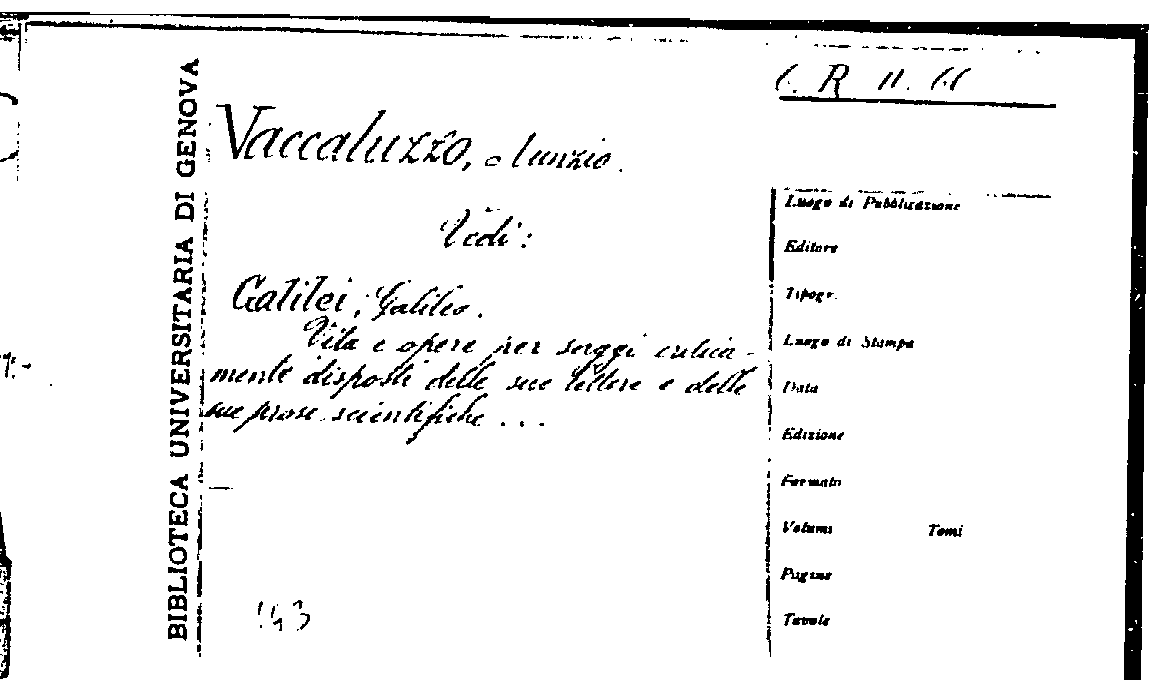 BIBLIOTECA UNIVERSITARIA DI GENOVA
R 11. 66
Vaccaluzzo, Nunzio.
Vedi:
Galilei, Galileo.
Vita e opere per saggi critica-
mente disposti delle sue lettere e delle
sue prose scientifiche ...
143
Luogo di Pubblicazione
Editore
Tipogr.
Luogo di Stampa
Data
Edizione
Formato
Volumi Tomi
Pagine
Tavole